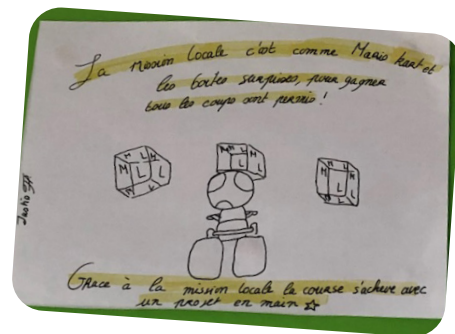 La mission locale c'est comme Mario kart et
les boites surprises, pour gagner
tous les coups sont permis !
M L M L
M L M L
M L M L
Grace à la mission locale la course s'achève avec
un projet en main ☆